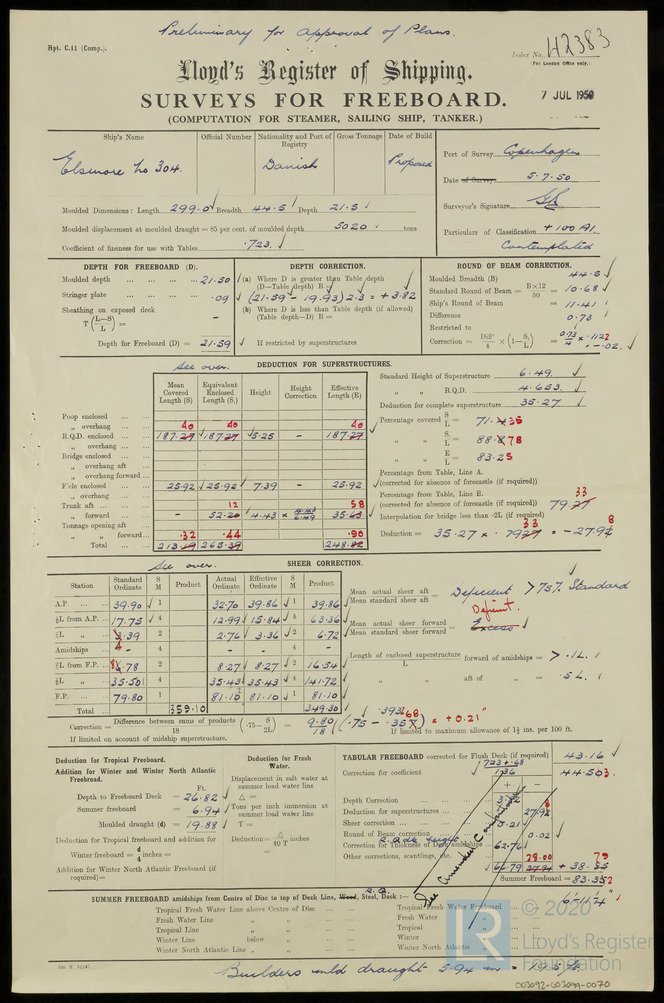 Preliminary for approval of Plans.
Rpt. C.11 (Comp.).
Index No. 42383
(For London Office only.)
Lloyd's Register of Shipping.
SURVEYS FOR FREEBOARD.
7 JUL 1950
(COMPUTATION FOR STEAMER, SAILING SHIP, TANKER.)
Ship's Name Official Number Nationality and Port of Registry Gross Tonnage Date of Build
Elsinore No 304. Danish Proposed
Port of Survey Copenhagen
Date of Survey 5.7.50
Surveyor's Signature
Particulars of Classification + 100 A1.
Contemplated
Moulded Dimensions: Length 299.0 Breadth 44.5 Depth 21.5
Moulded displacement at moulded draught = 85 per cent. of moulded depth 5020 tons
Coefficient of fineness for use with Tables .723.
DEPTH FOR FREEBOARD (D).
Moulded depth 21.50
Stringer plate .09
Sheathing on exposed deck
T (L—S/L) = –
Depth for Freeboard (D) = 21.59
DEPTH CORRECTION.
(a) Where D is greater than Table depth
(D—Table depth) R =
(21.59 – 19.93) 2.3 = + 3.82
(b) Where D is less than Table depth (if allowed)
(Table depth—D) R =
If restricted by superstructures
ROUND OF BEAM CORRECTION.
Moulded Breadth (B) 44.5
Standard Round of Beam = B×12/50 = 10.68
Ship's Round of Beam = 11.41
Difference 0.73
Restricted to
Correction = Diff/4 × (1—S/L) = 0.73/4 × .1122
= –.02.
See over.
DEDUCTION FOR SUPERSTRUCTURES.
Mean Covered Length (S) Equivalent Enclosed Length (S₁) Height Height Correction Effective Length (E)
Poop enclosed
„ overhang 40 40 40
R.Q.D. enclosed 187.27 187.27 5.25 – 187.27
„ overhang
Bridge enclosed
„ overhang aft
„ overhang forward
F'cle enclosed 25.92 25.92 7.39 – 25.92
„ overhang
Trunk aft 12 58
„ forward – 52.20 4.43 × 4.43/6.49 35.63
Tonnage opening aft
„ „ forward .32 .44 .90
Total 213.19 265.39 248.82
Standard Height of Superstructure 6.49
„ „ R.Q.D. 4.653.
Deduction for complete superstructure 35.27
Percentage covered S/L = 71.35
„ „ S₁/L = 88.78
„ „ E/L = 83.25
Percentage from Table, Line A.
(corrected for absence of forecastle (if required))
Percentage from Table, Line B. 33
(corrected for absence of forecastle (if required)) 79.27
Interpolation for bridge less than .2L (if required)
33 8
Deduction = 35.27 × .7927 = –27.94
See over.
SHEER CORRECTION.
Station Standard Ordinate S M Product Actual Ordinate Effective Ordinate S M Product
A.P. 39.90 1 32.70 39.86 1 39.86
⅙L from A.P. 17.75 4 12.99 15.84 4 63.36
⅓L „ 3.39 2 2.76 3.36 2 6.72
Amidships – 4 – – 4 –
⅓L from F.P. 8.78 2 8.27 8.27 2 16.54
⅙L „ 35.50 4 35.43 35.43 4 141.72
F.P. 79.80 1 81.10 81.10 1 81.10
Total 359.10 349.30
Mean actual sheer aft / Mean standard sheer aft = Deficient > 75% Standard
Deficient.
Mean actual sheer forward / Mean standard sheer forward = Excess
Length of enclosed superstructure forward of amidships = > .1L.
L
„ „ aft of „ = .5L.
Correction = Difference between sums of products/18 (.75— S/2L) = 9.80/18 (.75 – .357) = + 0.21"
If limited on account of midship superstructure.
If limited to maximum allowance of 1½ ins. per 100 ft.
Deduction for Tropical Freeboard.
Addition for Winter and Winter North Atlantic Freeboard.
Ft.
Depth to Freeboard Deck = 26.82
Summer freeboard = 6.94
Moulded draught (d) = 19.88
Deduction for Tropical freeboard and addition for
Winter freeboard = d/4 inches =
Addition for Winter North Atlantic Freeboard (if required)=
Deduction for Fresh Water.
Displacement in salt water at summer load water line
Δ =
Tons per inch immersion at summer load water line
T =
Deduction = Δ/40 T inches
=
TABULAR FREEBOARD corrected for Flush Deck (if required) 43.16
Correction for coefficient .723 + .68/1.36 44.503.
+ –
Depth Correction
Deduction for superstructures 27.98
Sheer correction 0.21
Round of Beam correction 0.02
Correction for Thickness of Deck amidships 62.76
Other corrections, scantlings, etc. 28.00 79
66.79 + 38.85
Summer Freeboard = 83.352
6'-11¼"
See Amended Computation
SUMMER FREEBOARD amidships from Centre of Disc to top of Deck Line, Wood, Steel, Deck :—
Tropical Fresh Water Line above Centre of Disc
Fresh Water Line „ „
Tropical Line „ „
Winter Line below „
Winter North Atlantic Line „ „
Tropical Fresh Water Freeboard
Fresh Water „
Tropical „
Winter „
Winter North Atlantic „
Builders mld draught 5.94 m = 19.5 ft.
© 2020
LR
Lloyd's Register
Foundation
003092-003099-0070